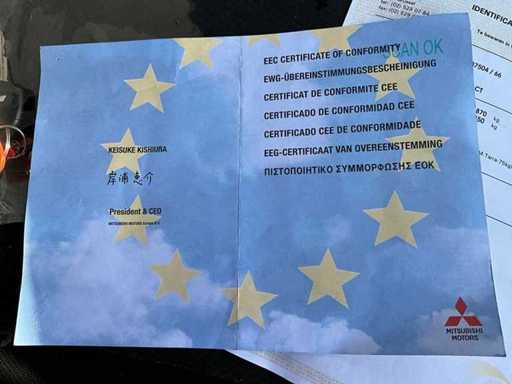 KEISUKE KISHIURA
岸浦恵介
President & CEO
MITSUBISHI MOTORS Europe B.V.
EEC CERTIFICATE OF CONFORMITY
SCAN OK
EWG-ÜBEREINSTIMMUNGSBESCHEINIGUNG
CERTIFICAT DE CONFORMITE CEE
CERTIFICADO DE CONFORMIDAD CEE
CERTIFICADO CEE DE CONFORMIDADE
EEG-CERTIFICAAT VAN OVEREENSTEMMING
ΠΙΣΤΟΠΟΙΗΤΙΚΟ ΣΥΜΜΟΡΦΩΣΗΣ ΕΟΚ
MITSUBISHI
MOTORS
IDENTIFICA
07504 / 66
870 kg